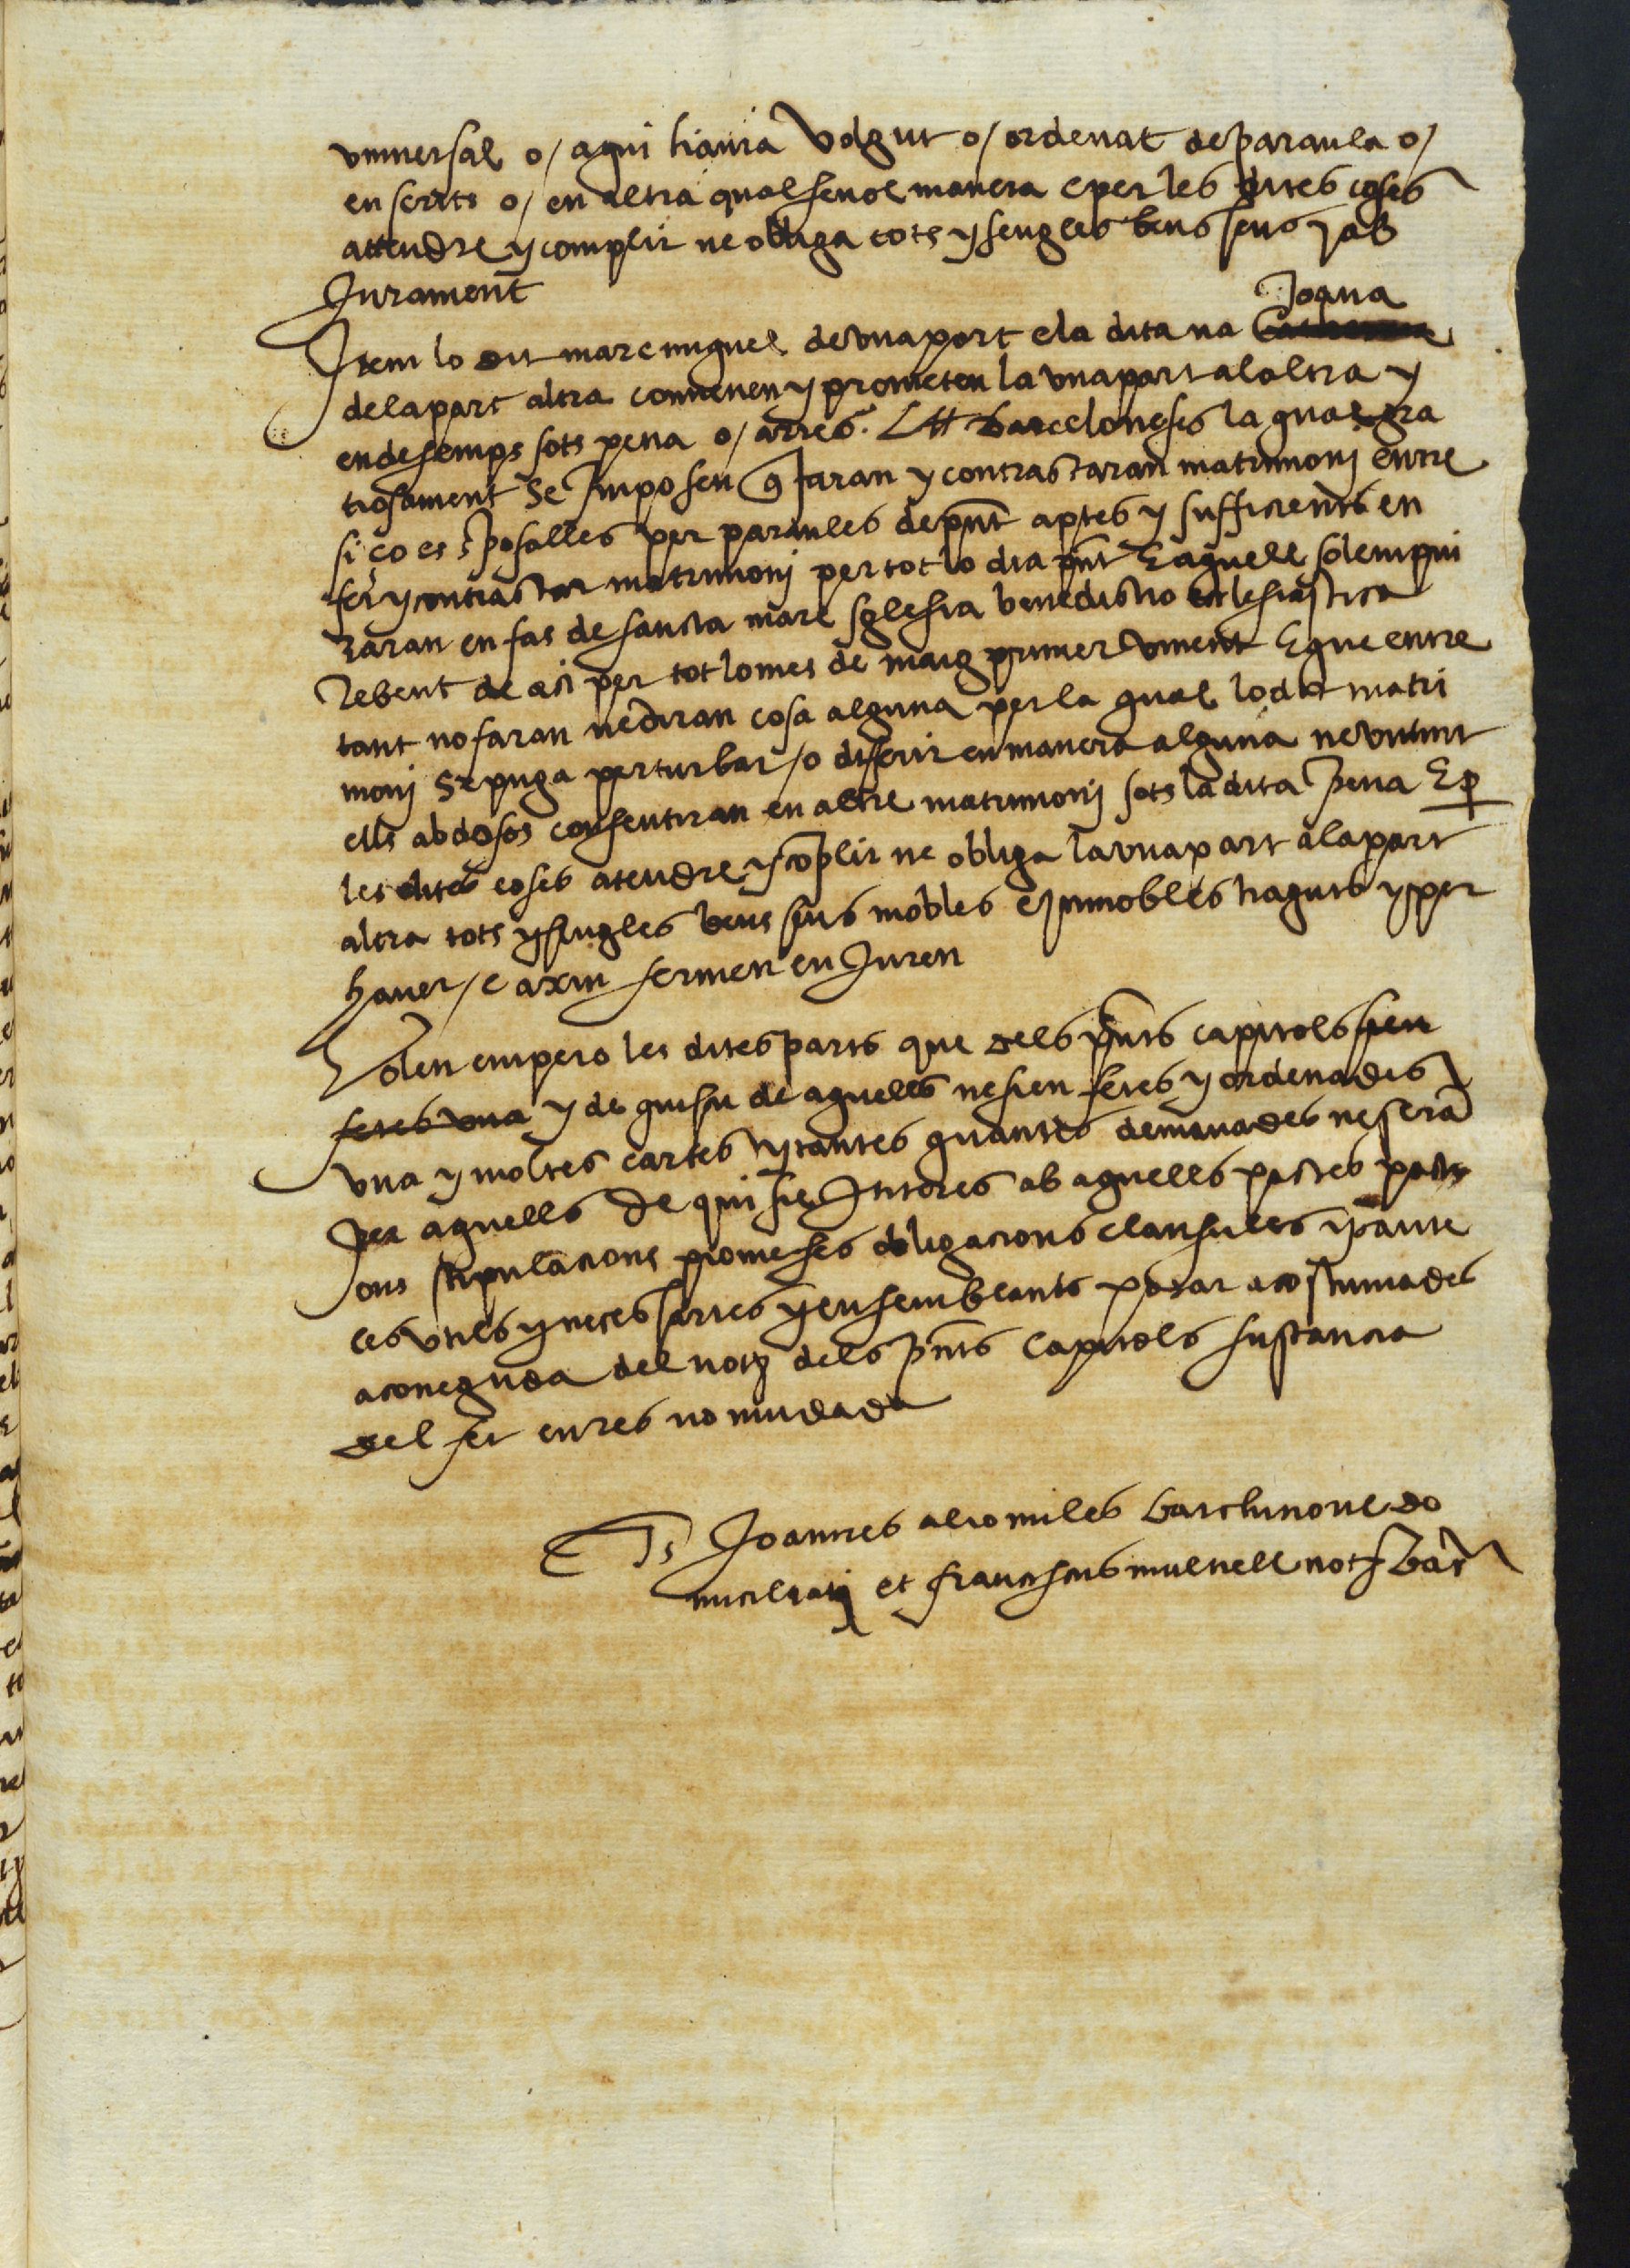 vniuersal o/ aqui haura volgut o/ ordenat de paraula o/
en scrits o/ en altra qualseuol manera e per les dites coses
attendre y complir ne obliga tots y sengles bens seus y ab
Jurament
Joana
Item lo dit marc miquel de vna part e la dita na
de la part altra conuenen y prometen la vna part a la altra y
endesemps sots pena o/ arres L ₶ barceloneses la qual gra
tiosament se Imposen q faran y contractaran matrimoni entre
si ço es sposalles per paraules de pnt aptes y sufficients en
fer y contractar matrimonj per tot lo dia pnt E aquell solempni
zaran en fas de sancta mare sglesia benedictio eclesiastica
rebent de aci per tot lo mes de maig primer vinent E que entre
tant no faran ne diran cosa alguna per la qual lo dit matri
monj se puga perturbar /o diferir en manera alguna ne viuint
ells abdosos consentiran en altre matrimonj sots la dita pena E p
les dites coses atendre y coplir ne obliga la vna part a la part
altra tots y sengles bens seus mobles e Inmobles haguts y per
hauer /e axin fermen en Juren
Volen empero les dites parts que dels pnts capitols sien
fetes vna y de quiscu de aquells ne sien fetes y ordenades
vna y moltes cartes y tantes quantes demanades ne sera
per aquells de qui sie Interes ab aquells pactes pacti
ons stipulacions promeses obligacions clausules y caute
les vtils y necessaries y en semblants posar acostumades
a coneguda del notj dels pnts capitols sustancia
del fet en res no mudada
Ts Joannes alio miles barchinone do
miciliatj et franciscus mulnell notj bar